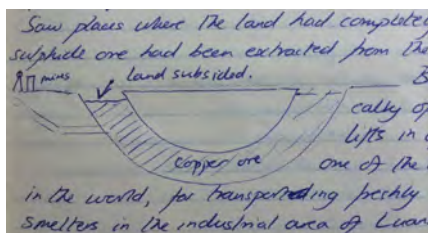 Saw places where the land had completely
sulphide ore had been extracted from the
mins land subsided.
B
calky of
lifts in
copper ore one of the
in the world, for transporteding freshly
smelters in the industrial area of Luan